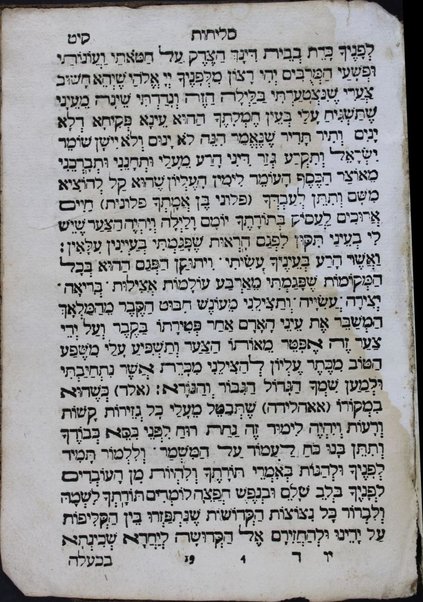 סליחות קיט
לפניך כרת בבית דינך הצדק על חטאתי ועונותי
ופשעי המרובים יהי רצון מלפניך יי אלהי שיהא חשוב
צערי שנצטערתי בלילה הזה ונדדתי שינה מעיני
שתשגיח עלי בעין חמלתך ההוא עינא פקיחא דלא
נים ותיר תדיר שנאמר הנה לא ינום ולא יישן שומר
ישראל ותקרע גזר דיני הרע מעלי ותחנני ותברכני
מאוצר הכסף העומד לימין העליון שהוא קל להוציא
משם ותתן לעבדך (פלוני בן אמתך פלונית) חיים
ארוכים לעסוק בתורתך יומם ולילה ויהיה הצער שיש
לי בעיני תקון לפגם הראות שפגמתי בעיינין עלאין:
ואשר הרע בעיניך עשיתי ויתוקן הפגם ההוא בכל
המקומות שפגמתי מארבע עולמות אצילות בריאה
יצירה עשייה ותצילני מעונש חבוט הקבר מהמלאך
המשבר את עיני האדם אחר פטירתו בקבר ועל ידי
צער זה אפטר מאותו הצער ותשפיע עלי משפע
הטוב מכתר עליון להצילני מכרת אשר נתחייבתי
ולמען שמך הגדול הגבור והנורא: (אלד) כשהוא
במקורו (אאהלידה) שתבטל מעלי כל גזירות קשות
ורעות ויהיה לימוד זה נחת רוח לפני כסא כבודך
ותתן בנו כח לעמוד על המשמר וללמוד תמיד
לפניך ולהגות באמרי תורתך ולהיות מן העובדים
לפניך בלב שלם ובנפש חפצה לומדים תורתך לשמה
ולברור כל נצוצות הקדושות שנתפזרו בין הקליפות
על ידינו ולהחזירם אל הקדושה ליחדא שכינתא
יז ד 4 19 בבעלה